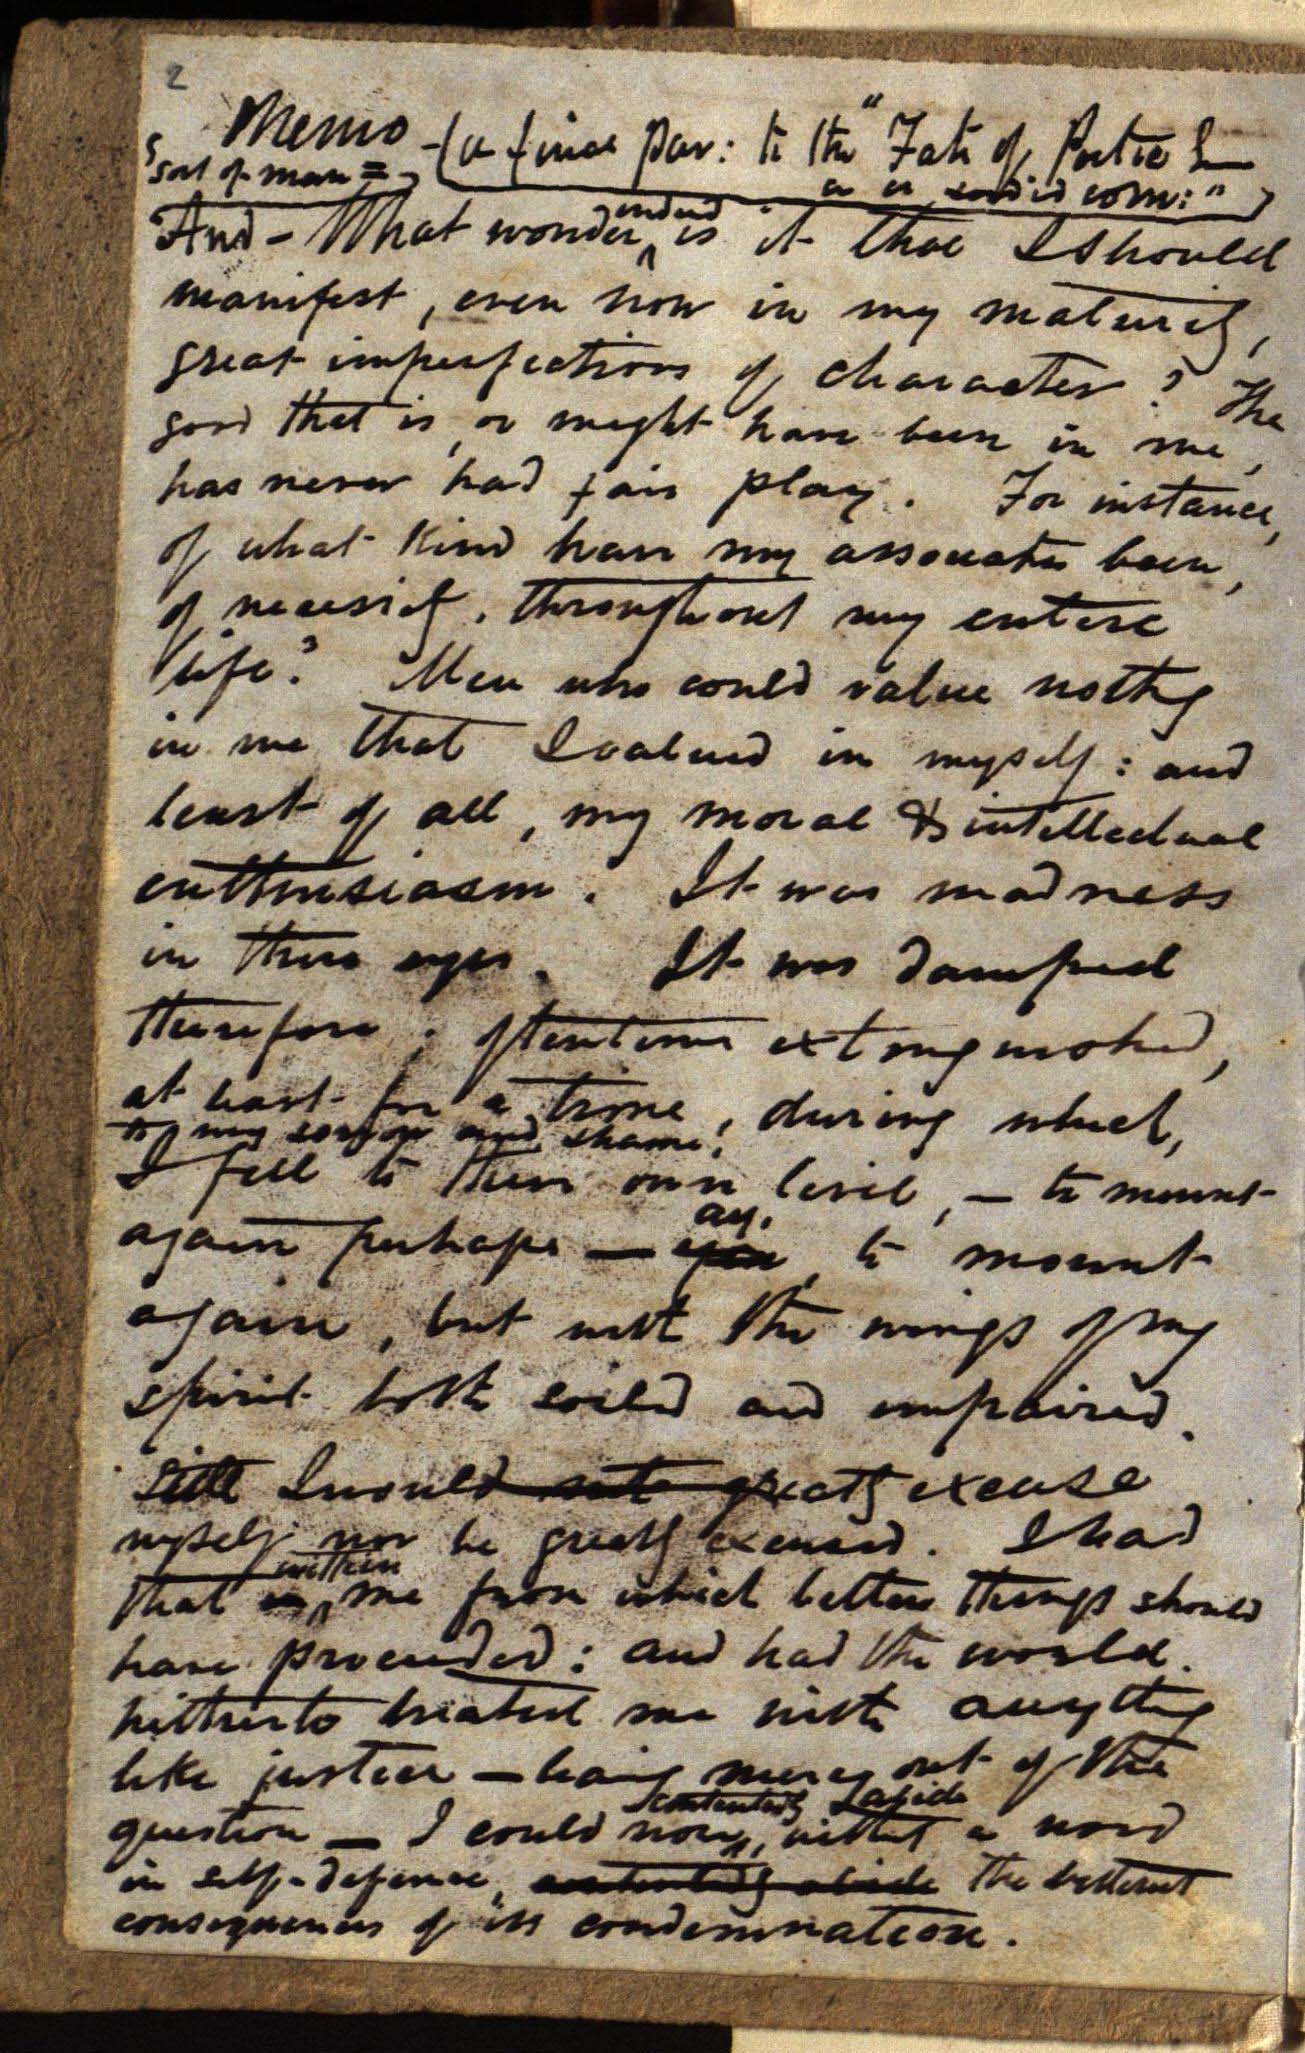 2
Memo — (a final par: to the "Fate of Poetic L—
sort of man = a a sordid com:")
And — What wonder indeed is it that I should
manifest, even now in my maturity,
great imperfections of character? The
good that is, or might have been in me,
has never had fair play. For instance,
of what kind have my associates been,
of necessity, throughout my entire
life? Men who could value nothg
in me that I valued in myself: and
least of all, my moral & intellectual
enthusiasm. It was madness
in their eyes. It was damped
therefore; oftentimes extinguished,
at least for a time, during which,
to my sorrow and shame!
I fell to their own level, — to mount
again perhaps — ay, to mount
again, but with the wings of my
spirit both soiled and impaired.
Still I would not greatly excuse
myself nor be greatly excused. I had
that in within me from which better things should
have proceeded: and had the world
hitherto treated me with anythg
like justice — being mercy out of the
question — I could now contentedly abide, without a word
in self-defence, contentedly abide the bitterest
consequences of its condemnation.